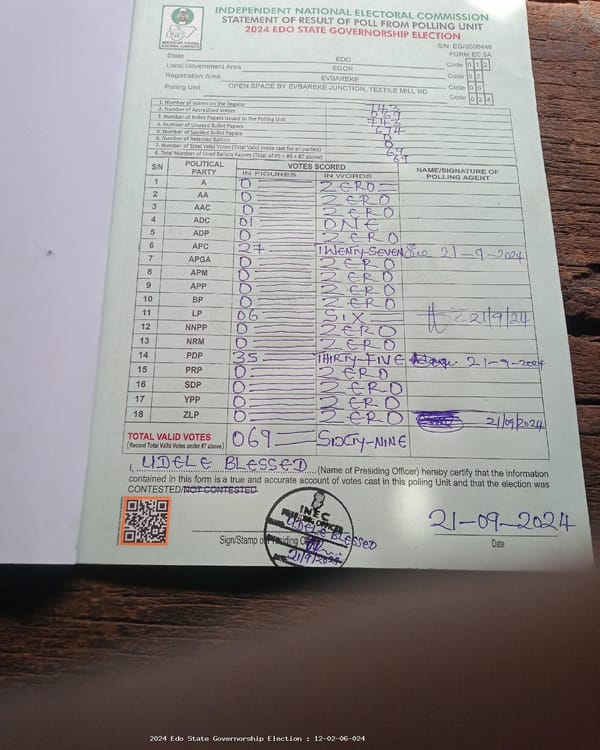 INDEPENDENT NATIONAL ELECTORAL COMMISSION
STATEMENT OF RESULT OF POLL FROM POLLING UNIT
2024 EDO STATE GOVERNORSHIP ELECTION
S/N: EG/0000446
FORM EC 8A
State EDO Code 0 1 2
Local Government Area EGOR Code 0 2
Registration Area EVBAREKE Code 0 6
Polling Unit OPEN SPACE BY EVBAREKE JUNCTION, TEXTILE MILL RD Code 0 2 4
1. Number of Voters on the Register 743
2. Number of Accredited Voters
3. Number of Ballot Papers Issued to the Polling Unit
4. Number of Unused Ballot Papers 674
5. Number of Spoiled Ballot Papers 0
6. Number of Rejected Ballots 0
7. Number of Total Valid Votes (Total Valid Votes cast for all parties) 69
8. Total Number of Used Ballots Papers (Total of #5 + #6 + #7 above) 69
S/N POLITICAL PARTY VOTES SCORED NAME/SIGNATURE OF POLLING AGENT
IN FIGURES IN WORDS
1 A 0 ZERO
2 AA 0 ZERO
3 AAC 0 ZERO
4 ADC 01 ONE
5 ADP 0 ZERO
6 APC 27 TWENTY-SEVEN 21-9-2024
7 APGA 0 ZERO
8 APM 0 ZERO
9 APP 0 ZERO
10 BP 0 ZERO
11 LP 06 SIX 21/9/24
12 NNPP 0 ZERO
13 NRM 0 ZERO
14 PDP 35 THIRTY-FIVE 21-9-2024
15 PRP 0 ZERO
16 SDP 0 ZERO
17 YPP 0 ZERO
18 ZLP 0 ZERO 21/09/2024
TOTAL VALID VOTES 069 SIXTY-NINE
(Record Total Valid Votes under #7 above)
I, UDELE BLESSED (Name of Presiding Officer) hereby certify that the information
contained in this form is a true and accurate account of votes cast in this polling Unit and that the election was
CONTESTED/NOT CONTESTED
INEC
PRESIDING OFFICER
UDELE BLESSED
21/9/2024
21-09-2024
Sign/Stamp of Presiding Officer Date
2024 Edo State Governorship Election : 12-02-06-024